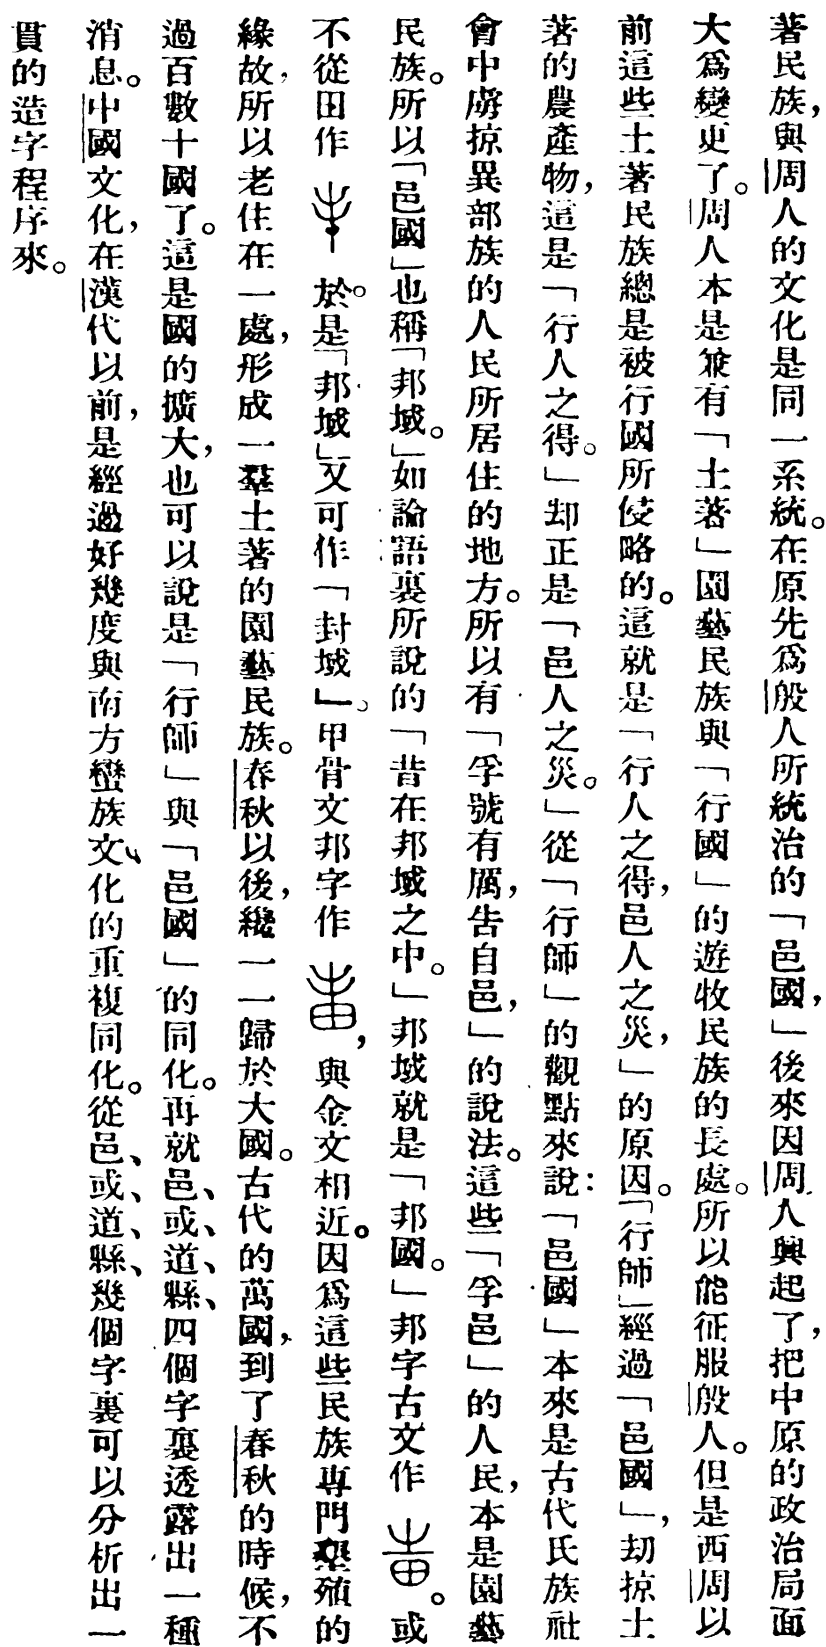 著民族，與周人的文化是同一系統。在原先爲殷人所統治的「邑國，」後來因周人興起了，把中原的政治局面
大爲變更了。周人本是兼有「土著」園藝民族與「行國」的遊牧民族的長處。所以能征服殷人。但是西周以
前這些土著民族總是被行國所侵略的。這就是「行人之得，邑人之災，」的原因。「行師」經過「邑國」，刼掠土
著的農產物，這是「行人之得。」却正是「邑人之災。」從「行師」的觀點來說：「邑國」本來是古代氏族社
會中虜掠異部族的人民所居住的地方。所以有「孚號有厲，告自邑，」的說法。這些「孚邑」的人民，本是園藝
民族。所以「邑國」也稱「邦域。」如論語裏所說的「昔在邦域之中。」邦域就是「邦國。」邦字古文作。或
不從田作 於。是「邦域」又可作「封域」。甲骨文邦字作，與金文相近。因爲這些民族專門墾殖的
緣故，所以老住在一處，形成一羣土著的園藝民族。春秋以後，纔一一歸於大國。古代的萬國，到了春秋的時候，不
過百數十國了。這是國的擴大，也可以說是「行師」與「邑國」的同化。再就邑、或、道、縣、四個字裏透露出一種
消息。中國文化，在漢代以前，是經過好幾度與南方蠻族文化的重複同化。從邑、或、道、縣、幾個字裏可以分析出一
貫的造字程序來。